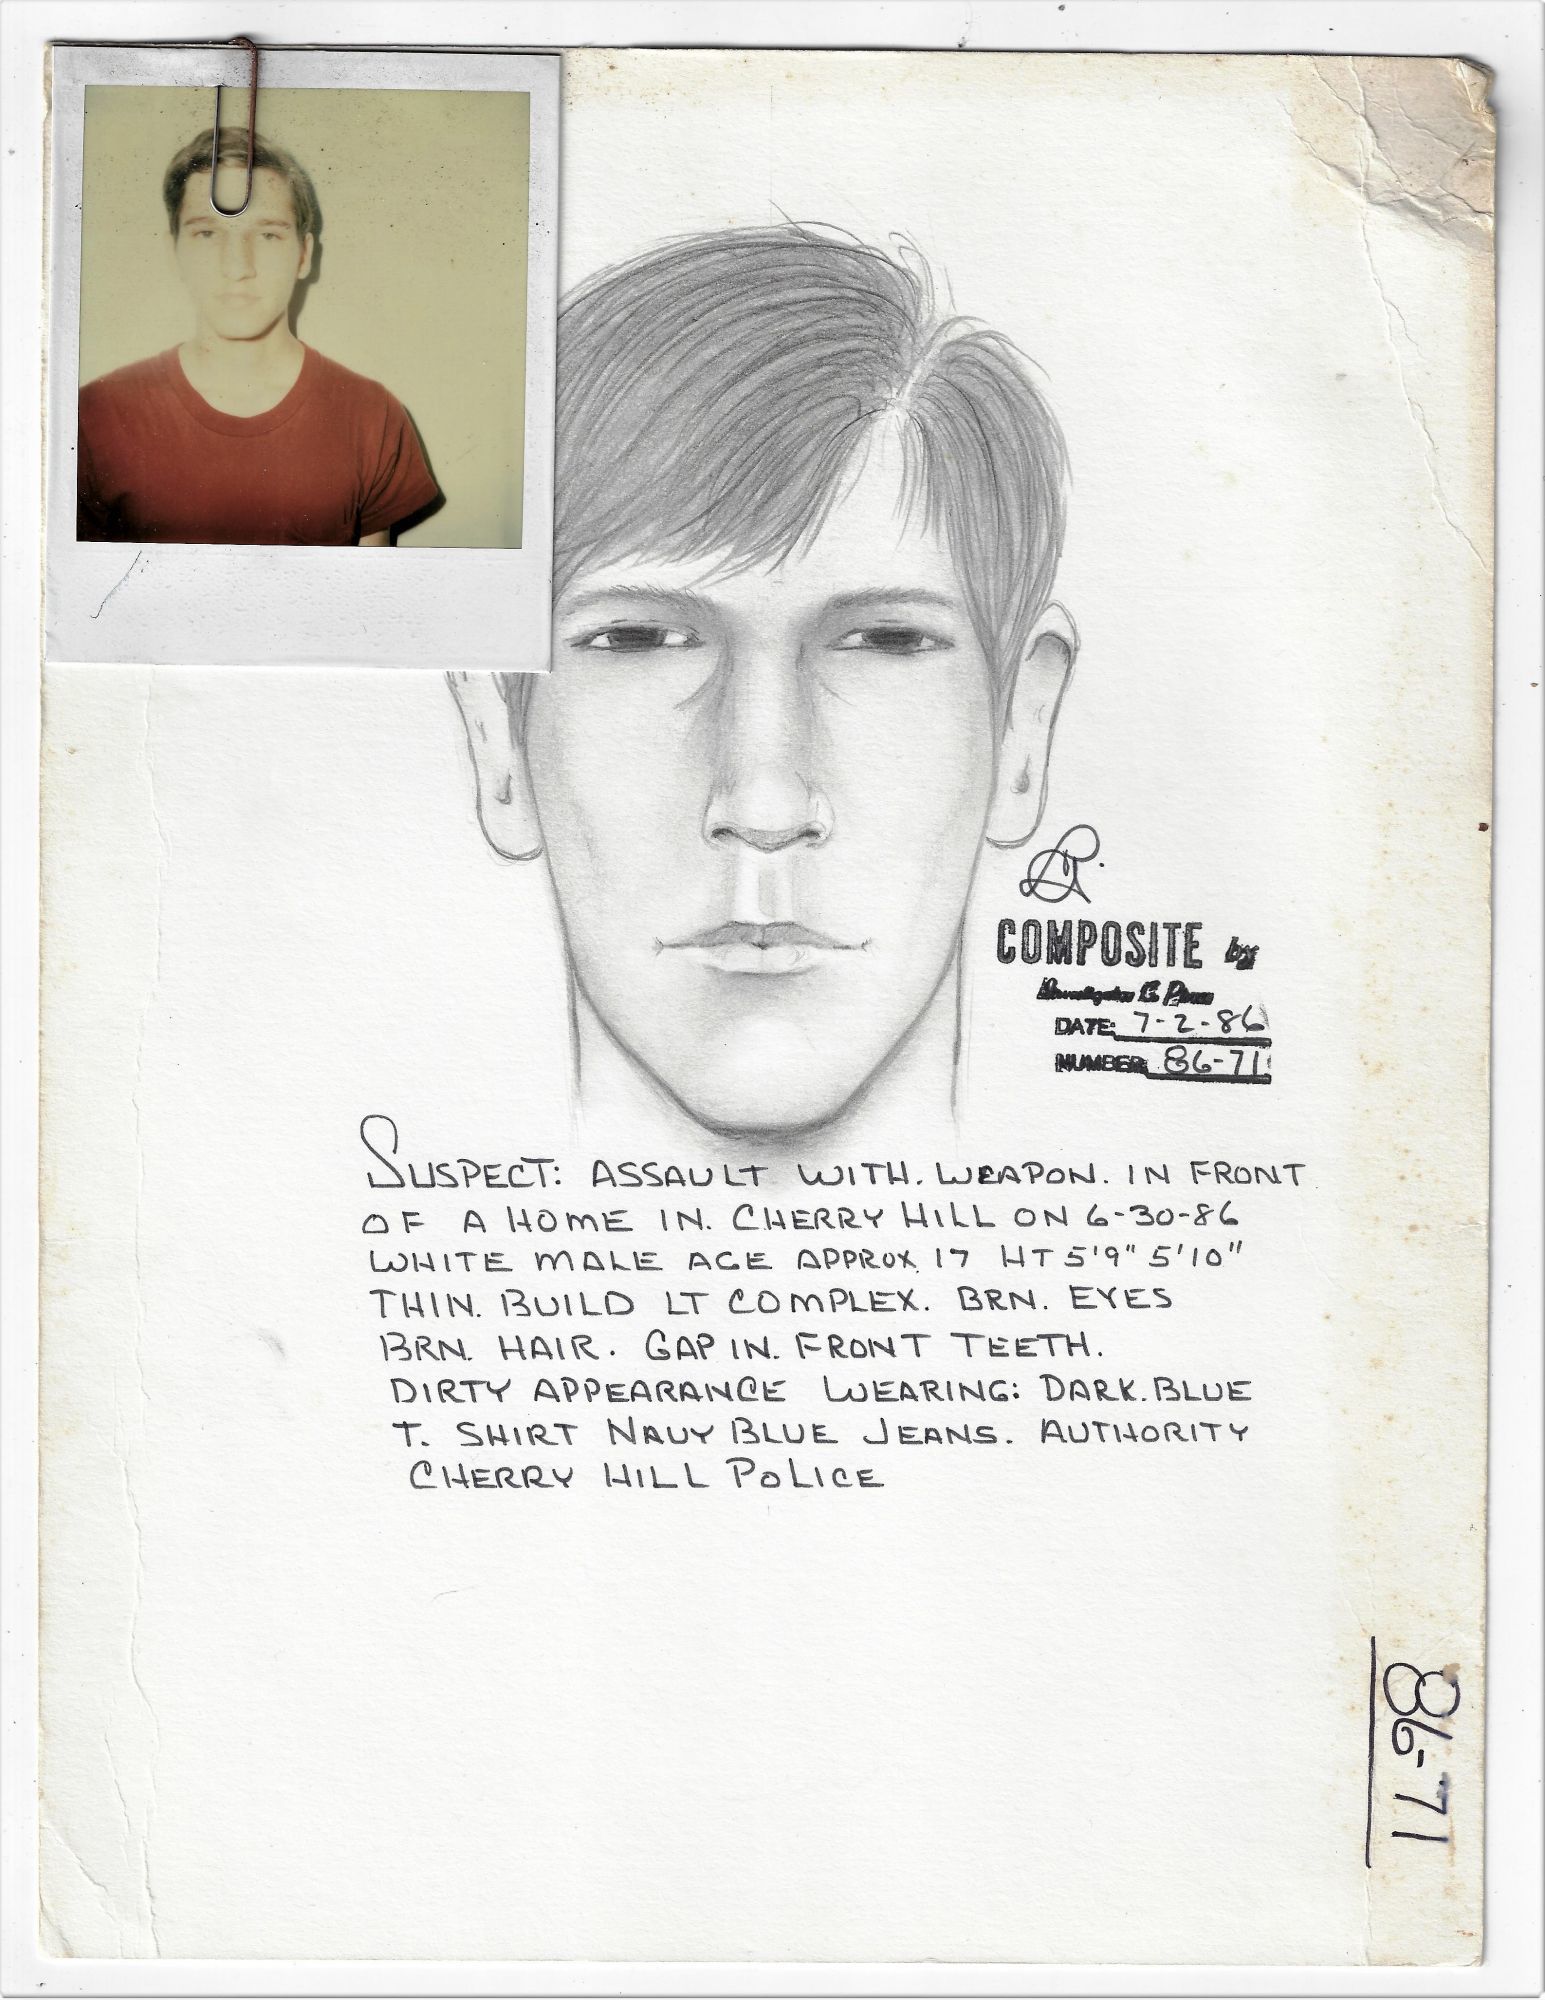 COMPOSITE by
DATE: 7-2-86
NUMBER 86-71
SUSPECT: ASSAULT WITH. WEAPON. IN FRONT
OF A HOME IN. CHERRY HILL ON 6-30-86
WHITE MALE AGE APPROX. 17 HT 5'9" 5'10"
THIN. BUILD LT COMPLEX. BRN. EYES
BRN. HAIR. GAP IN. FRONT TEETH.
DIRTY APPEARANCE WEARING: DARK. BLUE
T. SHIRT NAVY BLUE JEANS. AUTHORITY
CHERRY HILL POLICE
86-71